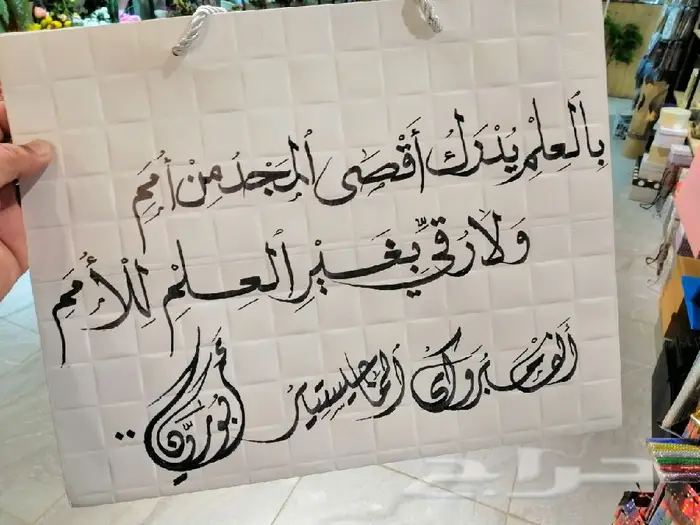 بِالْعِلْمِ يُدْرَكُ أَقْصَى الْمَجْدُ مِنْ أُمَمِ
وَلَا رُقِيَّ بِغَيْرِ الْعِلْمِ لِلْأُمَمِ
ألف مبروك الماجيستير
أبو ..
حراج